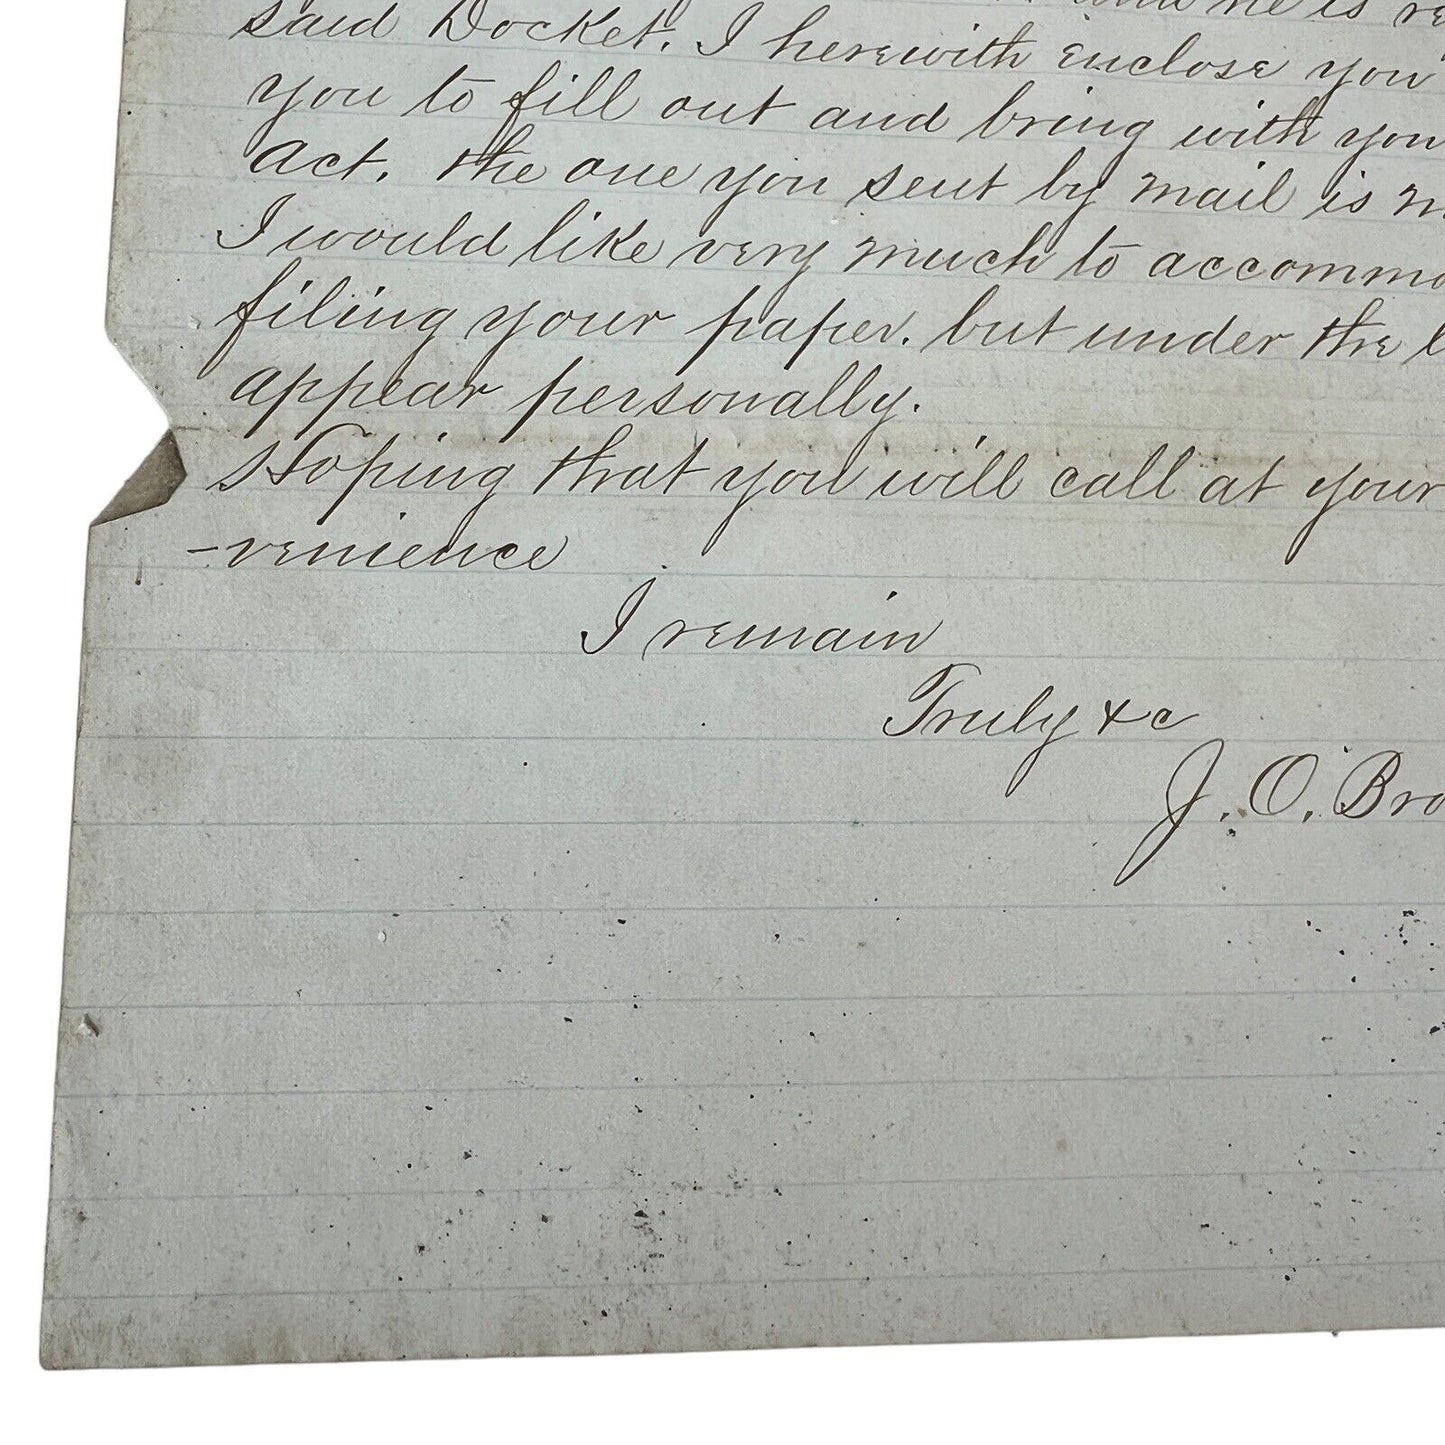 and he is re
said Docket. I herewith enclose you
you to fill out and bring with you
act. the one you sent by mail is n
I would like very much to accommo
filing your paper. but under the l
appear personally.
Hoping that you will call at your
-venience
I remain
Truly &c
J. O. Bro